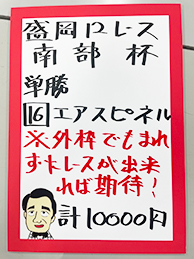 盛岡12レース
南部杯
単勝
16 エアスピネル
※外枠でもまれ
ずにレースが出来
れば期待！
計10000円